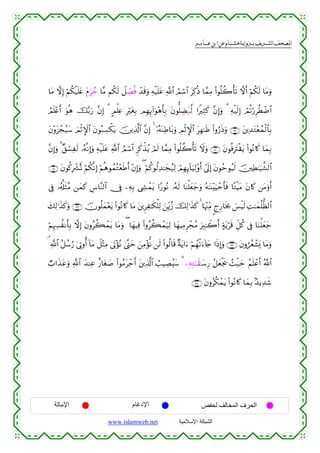 المصحف الشريف برواية هشام عن ابن عامر
وَمَا لَكُمْ أَلَّا تَأْكُلُوا۟ مِمَّا ذُكِرَ ٱسْمُ ٱللَّهِ عَلَيْهِ وَقَدْ فُصِّلَ لَكُم مَّا حُرِّمَ عَلَيْكُمْ إِلَّا مَا
ٱضْطُرِرْتُمْ إِلَيْهِ ۗ وَإِنَّ كَثِيرًا لَّيَضِلُّونَ بِأَهْوَآئِهِم بِغَيْرِ عِلْمٍ ۗ إِنَّ رَبَّكَ هُوَ أَعْلَمُ
بِٱلْمُعْتَدِينَ ﴿١١٩﴾ وَذَرُوا۟ ظَـٰهِرَ ٱلْإِثْمِ وَبَاطِنَهُۥٓ ۚ إِنَّ ٱلَّذِينَ يَكْسِبُونَ ٱلْإِثْمَ سَيُجْزَوْنَ
بِمَا كَانُوا۟ يَقْتَرِفُونَ ﴿١٢٠﴾ وَلَا تَأْكُلُوا۟ مِمَّا لَمْ يُذْكَرِ ٱسْمُ ٱللَّهِ عَلَيْهِ وَإِنَّهُۥ لَفِسْقٌ ۗ وَإِنَّ
ٱلشَّيَـٰطِينَ لَيُوحُونَ إِلَىٰٓ أَوْلِيَآئِهِمْ لِيُجَـٰدِلُوكُمْ ۖ وَإِنْ أَطَعْتُمُوهُمْ إِنَّكُمْ لَمُشْرِكُونَ
﴿١٢١﴾ أَوَمَن كَانَ مَيْتًا فَأَحْيَيْنَـٰهُ وَجَعَلْنَا لَهُۥ نُورًا يَمْشِى بِهِۦ فِى ٱلنَّاسِ كَمَن مَّثَلُهُۥ فِى
ٱلظُّلُمَـٰتِ لَيْسَ بِخَارِجٍ مِّنْهَا ۚ كَذَٰلِكَ زُيِّنَ لِلْكَـٰفِرِينَ مَا كَانُوا۟ يَعْمَلُونَ ﴿١٢٢﴾ وَكَذَٰلِكَ
جَعَلْنَا فِى كُلِّ قَرْيَةٍ أَكَـٰبِرَ مُجْرِمِيهَا لِيَمْكُرُوا۟ فِيهَا ۖ وَمَا يَمْكُرُونَ إِلَّا بِأَنفُسِهِمْ
وَمَا يَشْعُرُونَ ﴿١٢٣﴾ وَإِذَا جَآءَتْهُمْ ءَايَةٌ قَالُوا۟ لَن نُّؤْمِنَ حَتَّىٰ نُؤْتَىٰ مِثْلَ مَآ أُوتِىَ رُسُلُ ٱللَّهِ ۘ
ٱللَّهُ أَعْلَمُ حَيْثُ يَجْعَلُ رِسَالَـٰتِهِۦ ۗ سَيُصِيبُ ٱلَّذِينَ أَجْرَمُوا۟ صَغَارٌ عِندَ ٱللَّهِ وَعَذَابٌ
شَدِيدٌۢ بِمَا كَانُوا۟ يَمْكُرُونَ ﴿١٢٤﴾
الحرف المخالف لحفص الإدغام الإمالة
الشبكة الإسلامية www.islamweb.net